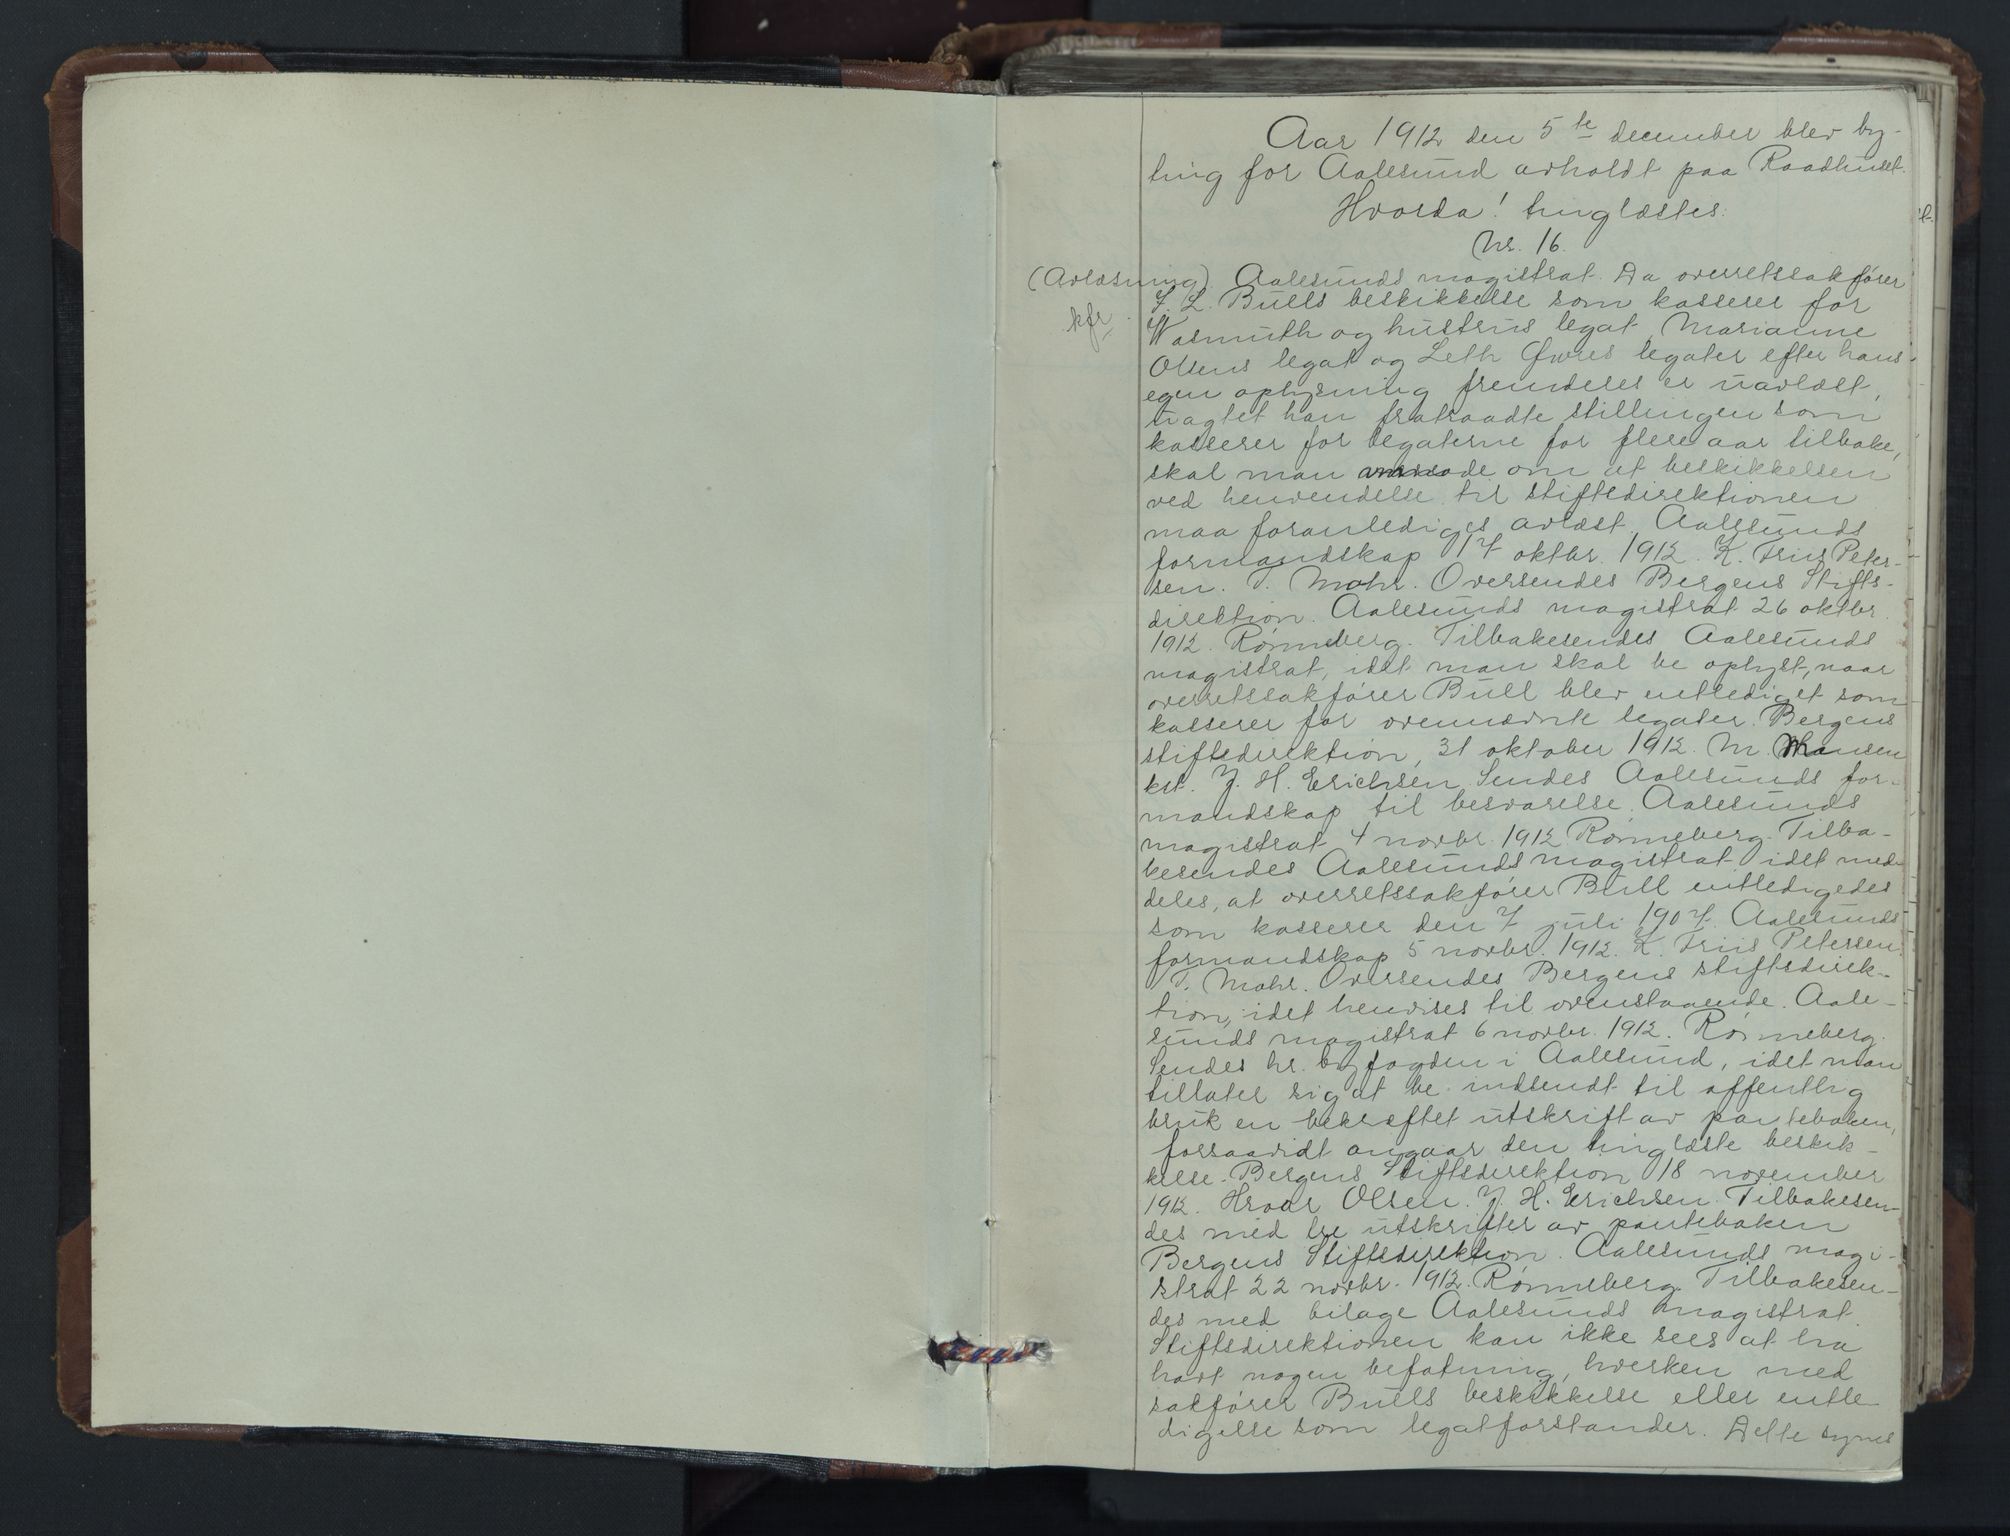 Aar 1912 den 5te december blev by-
ting for Aalesund avholdt paa Raadhuset.
Hvorda! tinglæstes:
Nr. 16.
(Avlæsning) Aalesunds magistrat. Da overretssakfører
kfr.
L. Bulls beskikkelse som kasserer for
Wasmuth og hustrus legat, Marianne
Olsens legat og Leth Owres legater efter hans
egen oplysning fremdeles er uavlæst,
uagtet han fratraadte stillingen som
kasserer for legaterne for flere aar tilbake,
skal man om at beskikkelsen
ved henvendelse til stiftsdirektionen
maa foranlediges avlæst. Aalesunds
formandskap 17 oktbr. 1912. K. Friis Peter-
sen. T. Mohr. Oversendes Bergens Stifts-
direktion. Aalesunds magistrat 26 oktbr.
1912. Rønneberg. Tilbakesendes Aalesunds
magistrat, idet man skal be oplyst, naar
overretssakfører Bull blev entlediget som
kasserer for ovennævnte legater. Bergens
stiftsdirektion, 31 oktober 1912. M. Hansen
kst. J. H. Erichsen. Sendes Aalesunds for-
mandskap til besvarelse. Aalesunds
magistrat 4 novbr. 1912 Rønneberg. Tilba-
kesendes Aalesunds magistrat idet med-
deles, at overretssakfører Bull entledigedes
som kasserer den 7 juli 1907. Aalesunds
formandskap 5 novbr. 1912. K. Friis Petersen.
T. Mohr. Oversendes Bergens stiftsdirek-
tion, idet henvises til ovenstaaende. Aale-
sunds magistrat 6 novbr. 1912. Rønneberg.
Sendes hr. byfogden i Aalesund, idet man
tillater sig at be indsendt til offentlig
bruk en bekræftet utskrift av panteboken,
forsaavidt angaar den tinglæste beskik-
kelse. Bergens Stiftsdirektion 18 november
1912. Hroar Olsen. J. H. Erichsen. Tilbakesen-
des med tre utskrifter av panteboken
Bergens Stiftsdirektion. Aalesunds magi-
strat 22 novbr. 1912. Rønneberg. Tilbakesen-
des med bilage Aalesunds magistrat.
Stiftsdirektionen kan ikke sees at ha
havt nogen befatning, hverken med
sakfører Bulls beskikkelse eller entle-
digelse som legatforstander. Dette synes